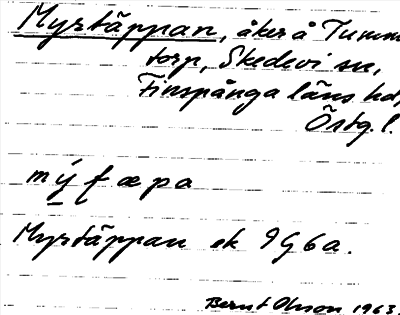 Myrtäppan, åker å Tumm
torp, Skedevi sn,
Finspånga läns hd,
Östg. l.
Myrtäppan ek 9G6a.
Bernt Olsson 1963.